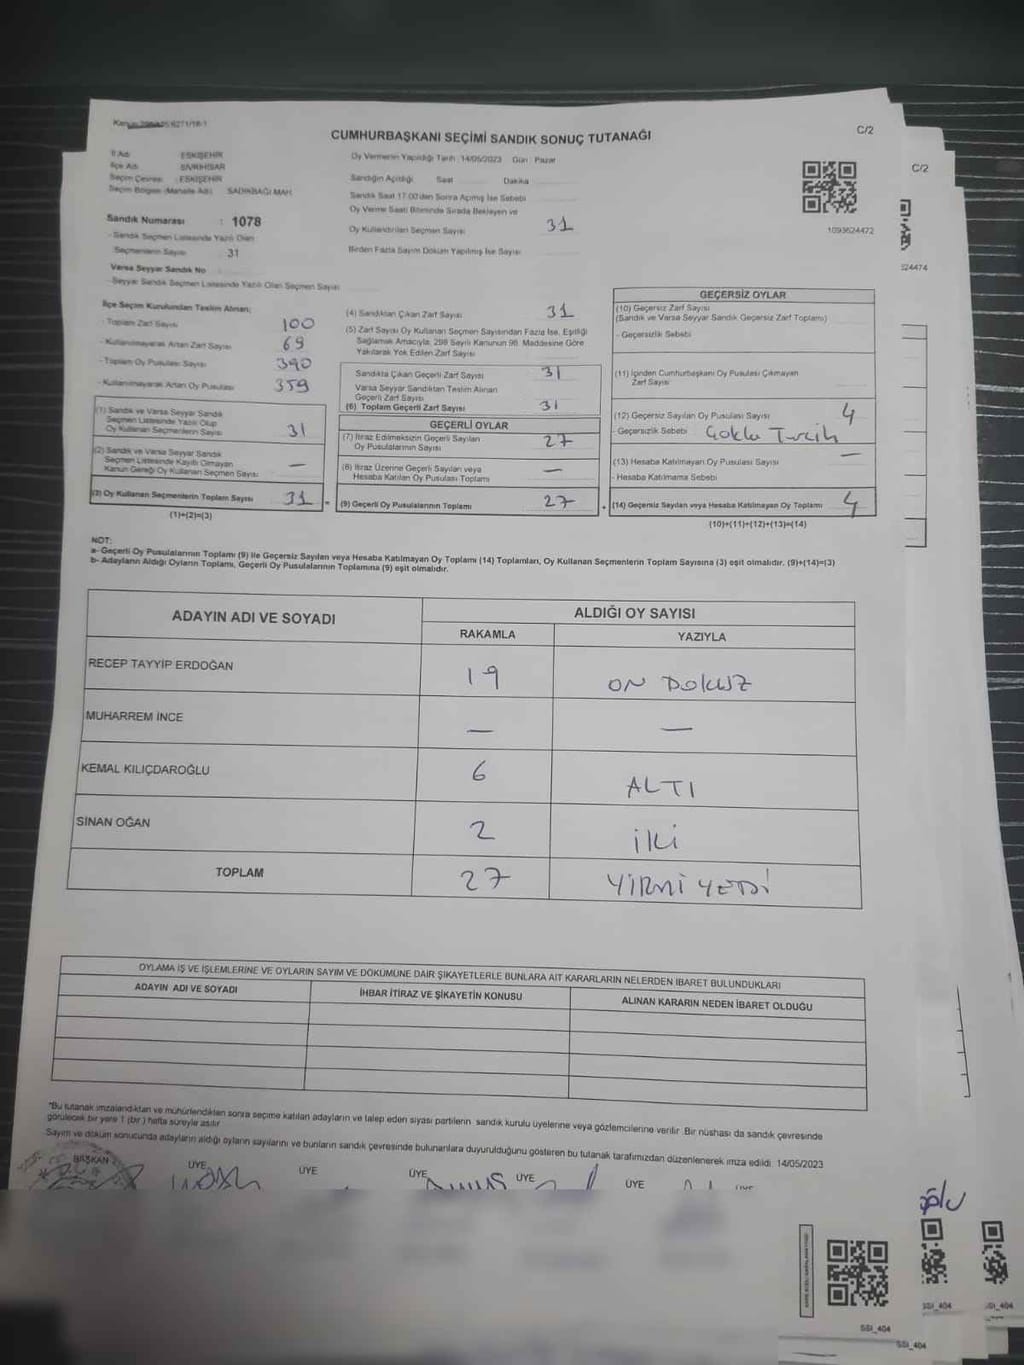 CUMHURBAŞKANI SEÇİMİ SANDIK SONUÇ TUTANAĞI
C/2
İl Adı : ESKİŞEHİR
İlçe Adı : SİVRİHİSAR
Seçim Çevresi : ESKİŞEHİR
Seçim Bölgesi (Mahalle Adı) SADIKBAĞI MAH.
Oy Vermenin Yapıldığı Tarih :14/05/2023 Gün : Pazar
Sandığın Açıldığı Saat Dakika
Sandık Saat 17.00'den Sonra Açılmış İse Sebebi
Oy Verme Saati Bitiminde Sırada Bekleyen ve
Oy Kullandırılan Seçmen Sayısı 31
Birden Fazla Sayım Döküm Yapılmış İse Sayısı
1093624472
Sandık Numarası : 1078
- Sandık Seçmen Listesinde Yazılı Olan
Seçmenlerin Sayısı 31
Varsa Seyyar Sandık No
- Seyyar Sandık Seçmen Listesinde Yazılı Olan Seçmen Sayısı
İlçe Seçim Kurulundan Teslim Alınan;
- Toplam Zarf Sayısı 100
- Kullanılmayarak Artan Zarf Sayısı 69
- Toplam Oy Pusulası Sayısı 390
- Kullanılmayarak Artan Oy Pusulası 359
(1) Sandık ve Varsa Seyyar Sandık
Seçmen Listesinde Yazılı Olup
Oy Kullanan Seçmenlerin Sayısı 31
(2) Sandık ve Varsa Seyyar Sandık
Seçmen Listesinde Kayıtlı Olmayan
Kanun Gereği Oy Kullanan Seçmen Sayısı —
(3) Oy Kullanan Seçmenlerin Toplam Sayısı 31
(1)+(2)=(3)
(4) Sandıktan Çıkan Zarf Sayısı 31
(5) Zarf Sayısı Oy Kullanan Seçmen Sayısından Fazla İse, Eşitliği
Sağlamak Amacıyla, 298 Sayılı Kanunun 98. Maddesine Göre
Yakılarak Yok Edilen Zarf Sayısı
Sandıkta Çıkan Geçerli Zarf Sayısı 31
Varsa Seyyar Sandıktan Teslim Alınan
Geçerli Zarf Sayısı
(6) Toplam Geçerli Zarf Sayısı 31
GEÇERLİ OYLAR
(7) İtiraz Edilmeksizin Geçerli Sayılan
Oy Pusulalarının Sayısı 27
(8) İtiraz Üzerine Geçerli Sayılan veya
Hesaba Katılan Oy Pusulası Toplamı —
(9) Geçerli Oy Pusulalarının Toplamı 27
GEÇERSİZ OYLAR
(10) Geçersiz Zarf Sayısı
(Sandık ve Varsa Seyyar Sandık Geçersiz Zarf Toplamı)
- Geçersizlik Sebebi
(11) İçinden Cumhurbaşkanı Oy Pusulası Çıkmayan
Zarf Sayısı
(12) Geçersiz Sayılan Oy Pusulası Sayısı 4
- Geçersizlik Sebebi Çoklu Tercih
(13) Hesaba Katılmayan Oy Pusulası Sayısı —
- Hesaba Katılmama Sebebi
(14) Geçersiz Sayılan veya Hesaba Katılmayan Oy Toplamı 4
(10)+(11)+(12)+(13)=(14)
NOT:
a- Geçerli Oy Pusulalarının Toplamı (9) ile Geçersiz Sayılan veya Hesaba Katılmayan Oy Toplamı (14) Toplamları, Oy Kullanan Seçmenlerin Toplam Sayısına (3) eşit olmalıdır. (9)+(14)=(3)
b- Adayların Aldığı Oyların Toplamı, Geçerli Oy Pusulalarının Toplamına (9) eşit olmalıdır.
ADAYIN ADI VE SOYADI ALDIĞI OY SAYISI
RAKAMLA YAZIYLA
RECEP TAYYİP ERDOĞAN 19 ON DOKUZ
MUHARREM İNCE — —
KEMAL KILIÇDAROĞLU 6 ALTI
SİNAN OĞAN 2 İKİ
TOPLAM 27 YİRMİ YEDİ
OYLAMA İŞ VE İŞLEMLERİNE VE OYLARIN SAYIM VE DÖKÜMÜNE DAİR ŞİKAYETLERLE BUNLARA AİT KARARLARIN NELERDEN İBARET BULUNDUKLARI
ADAYIN ADI VE SOYADI İHBAR İTİRAZ VE ŞİKAYETİN KONUSU ALINAN KARARIN NEDEN İBARET OLDUĞU
*Bu tutanak imzalandıktan ve mühürlendikten sonra seçime katılan adayların ve talep eden siyasi partilerin sandık kurulu üyelerine veya gözlemcilerine verilir. Bir nüshası da sandık çevresinde
görülecek bir yere 1 (bir) hafta süreyle asılır.
Sayım ve döküm sonucunda adayların aldığı oyların sayılarını ve bunların sandık çevresinde bulunanlara duyurulduğunu gösteren bu tutanak tarafımızdan düzenlenerek imza edildi. 14/05/2023
BAŞKAN ÜYE ÜYE ÜYE ÜYE ÜYE ÜYE
SSI_404
C/2
SSI_404
SSI_404
SSI_404